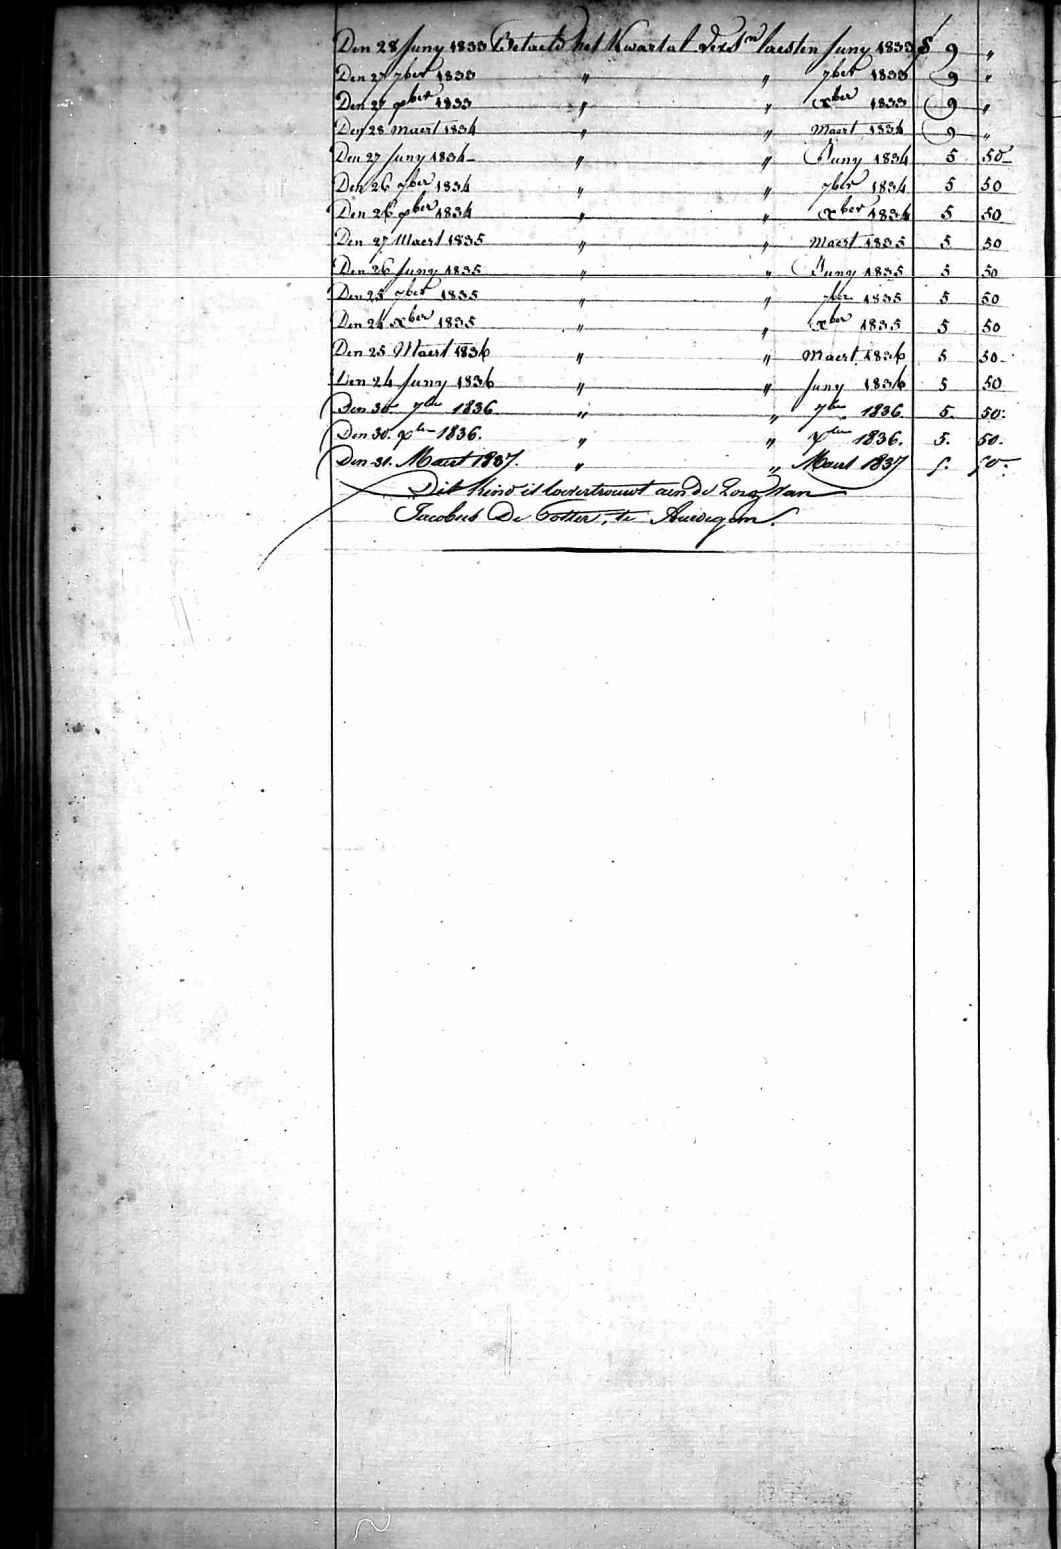 Den 28 Juny 1833 Betaeld het Kwartal laesten Juny 1833 9 "
Den 27 7ber 1833 " " 7ber 1833 9 "
Den 27 xber 1833 " " xber 1833 9 "
Den 28 Maert 1834 " " Maert 1834 9 "
Den 27 Juny 1834 " " Juny 1834 5 50
Den 26 7ber 1834 " " 7ber 1834 5 50
Den 26 xber 1834 " " xber 1834 5 50
Den 27 Maert 1835 " " Maert 1835 5 50
Den 26 Juny 1835 " " Juny 1835 5 50
Den 25 7ber 1835 " " 7ber 1835 5 50
Den 24 xber 1835 " " xber 1835 5 50
Den 25 Maert 1836 " " Maert 1836 5 50
Den 24 Juny 1836 " " Juny 1836 5 50
Den 30 7ber 1836 " " 7ber 1836. 5. 50.
Den 30. xber 1836. " " xber 1836. 5. 50.
Den 31. Maert 1837. " " Maert 1837 5. 50.
Dit kind is toevertrouwt aen de Zorg van
Jacobus De te Audegem.